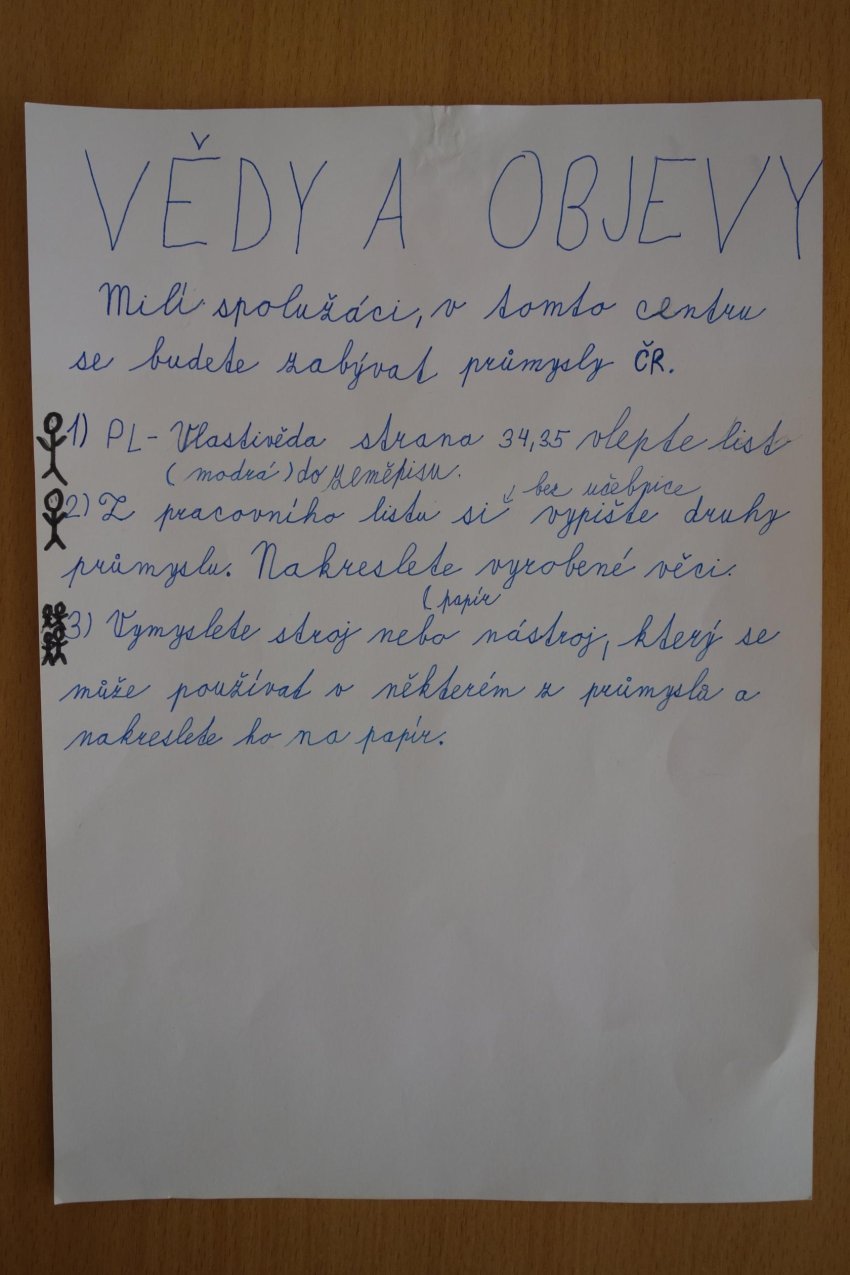 VĚDY A OBJEVY
Milí spolužáci, v tomto centru
se budete zabývat průmysly ČR.
1) PL- Vlastivěda strana 34,35 vlepte list
(modrá) do zeměpisu.
↓ bez učebnice
2) Z pracovního listu si vypište druhy
průmyslu. Nakreslete vyrobené věci.
(papír
3) Vymyslete stroj nebo nástroj, který se
může používat v některém z průmyslů a
nakreslete ho na papír.